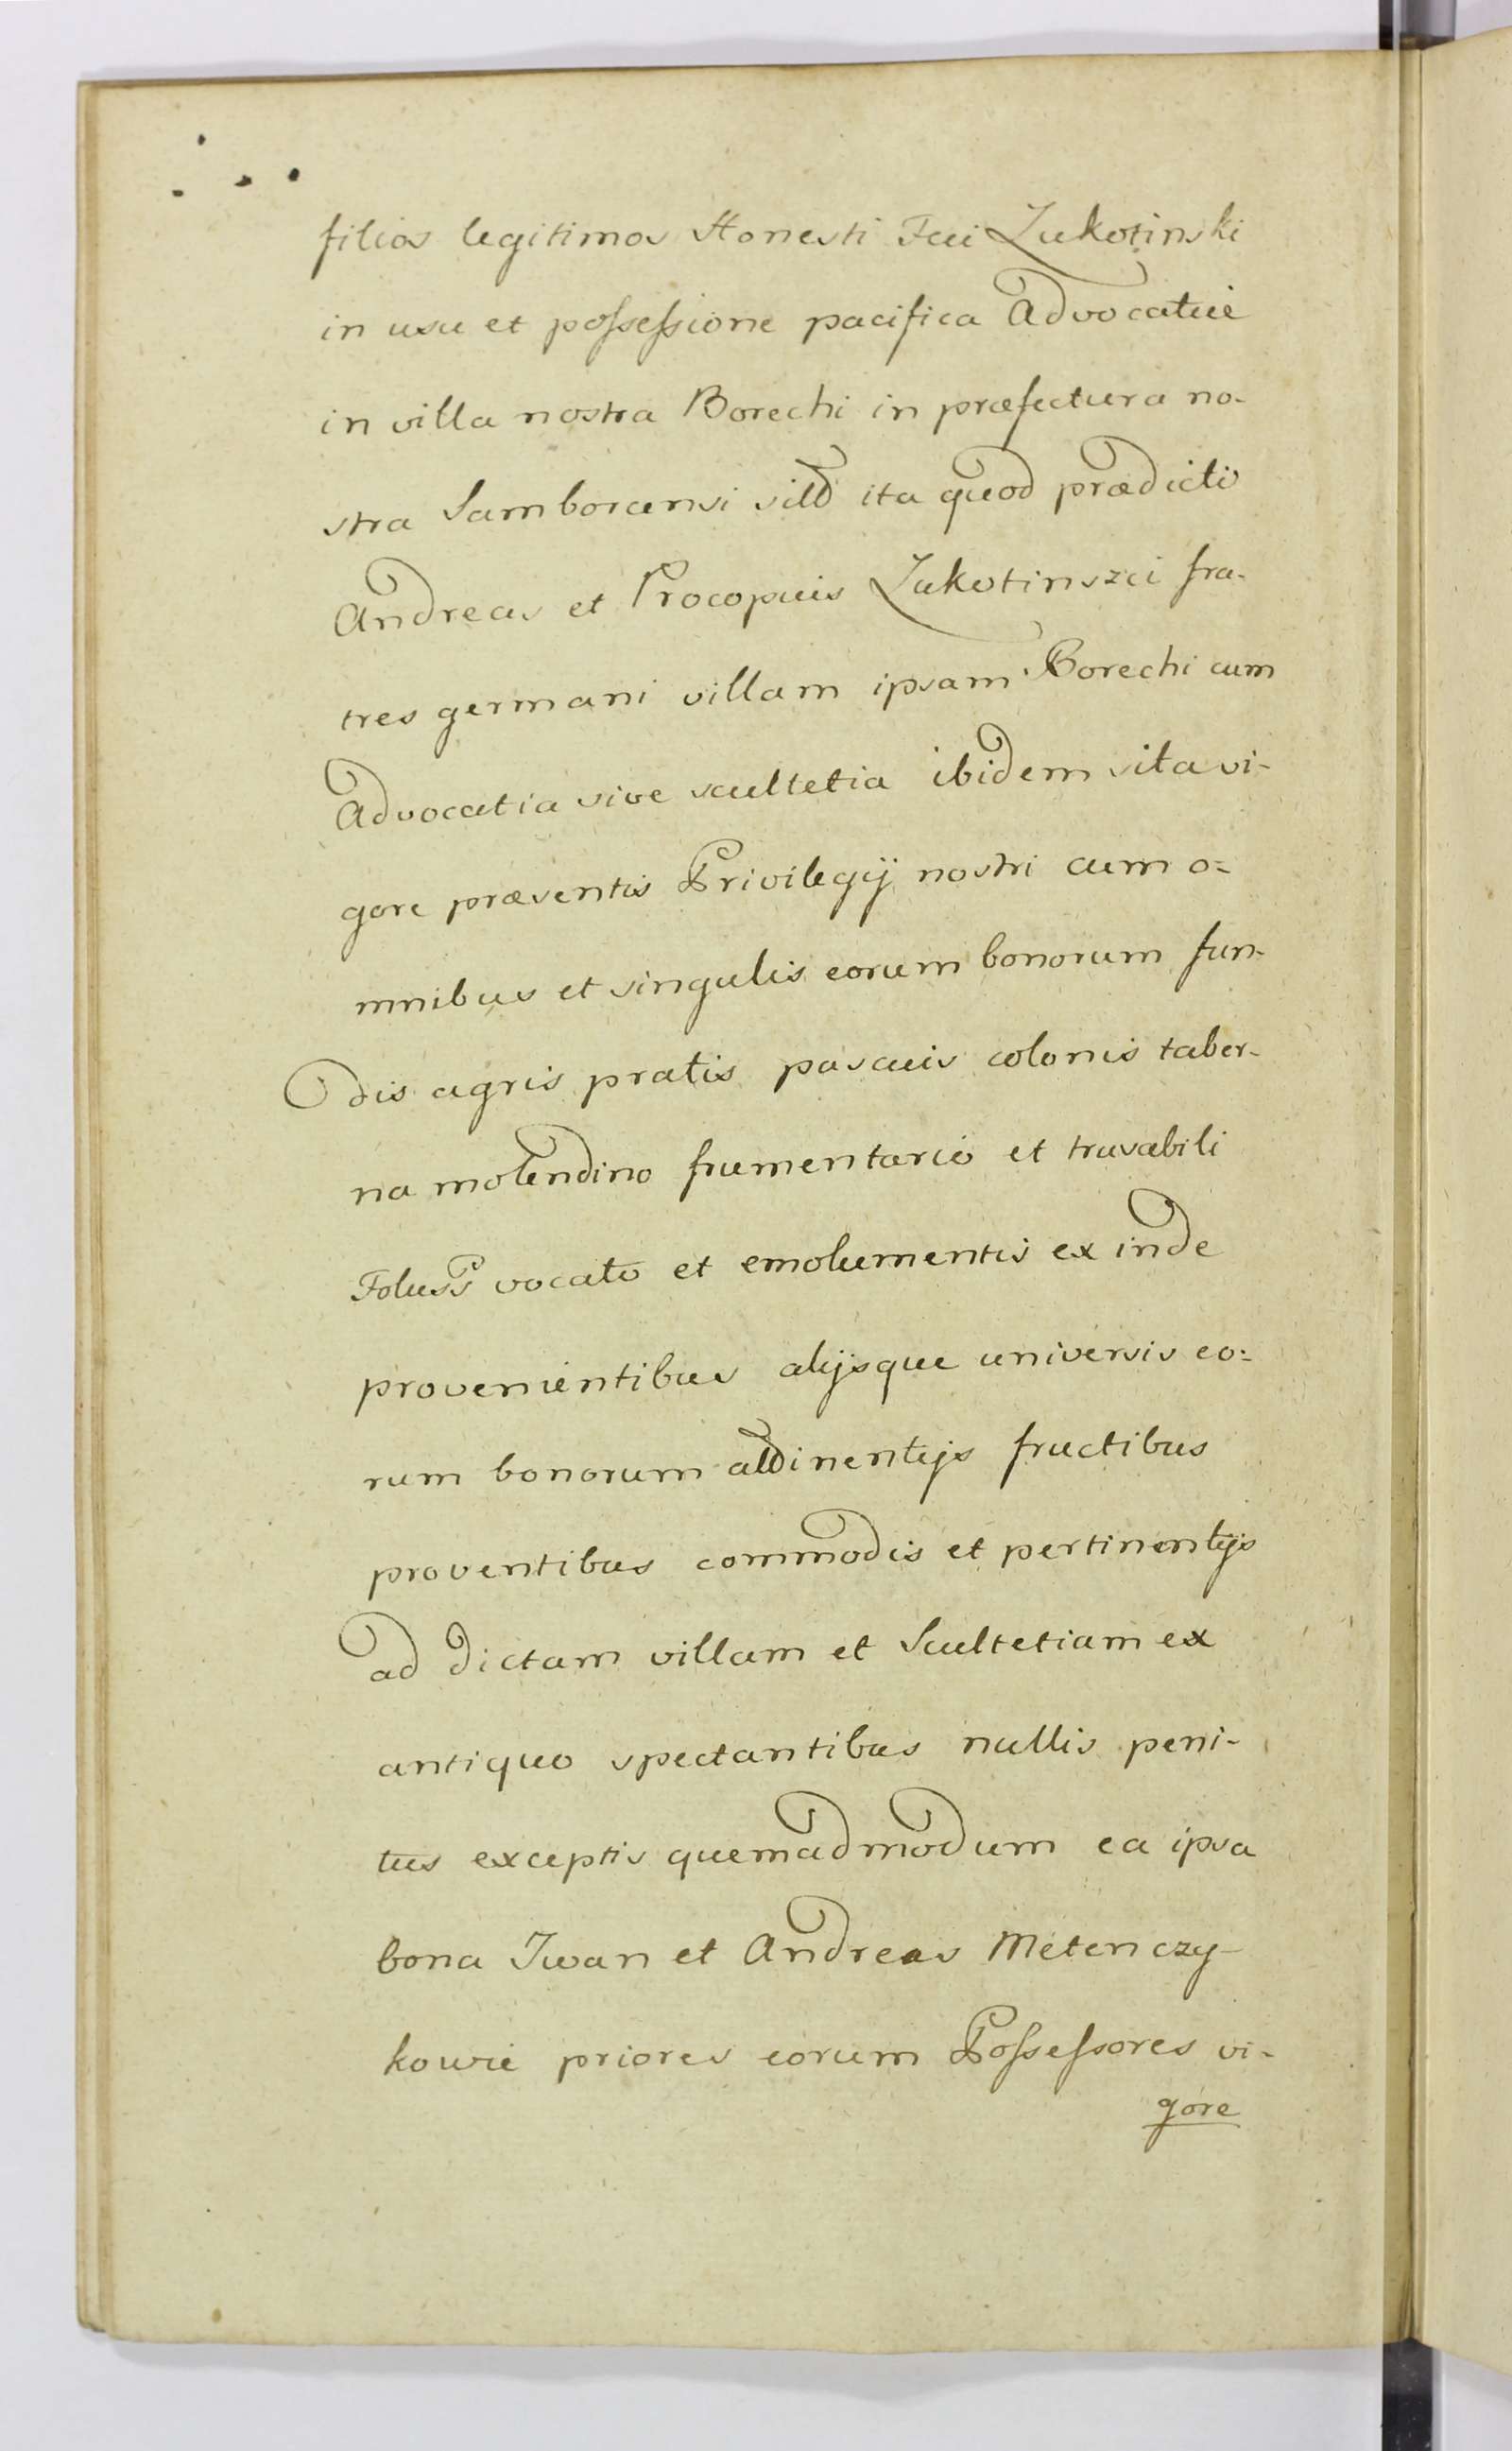 filios legitimos Honesti Fui Lukotinski
in usu et possessione pacifica Advocatiæ
in villa nostra Borechi in præfectura no-
stra Samborcensi sita ita quod prædicti
Andreas et Procopius Lukotinszci fra-
tres germani villam ipsam Borechi cum
Advocatia sive scultetia ibidem sita vi-
gore præsentis Privilegij nostri cum o=
mnibus et singulis eorum bonorum fun-
dis agris pratis pascuis colonis taber-
na molendino frumentario et trusabili
Foluss vocato et emolumentis ex inde
provenientibus alijsque universis eo=
rum bonorum attinentijs fructibus
proventibus commodis et pertinentijs
ad dictam villam et Scultetiam ex
antiquo spectantibus nullis peni-
tus exceptis quemadmodum ea ipsa
bona Iwan et Andreas Metenczy-
kowie priores eorum Possessores vi-
gore